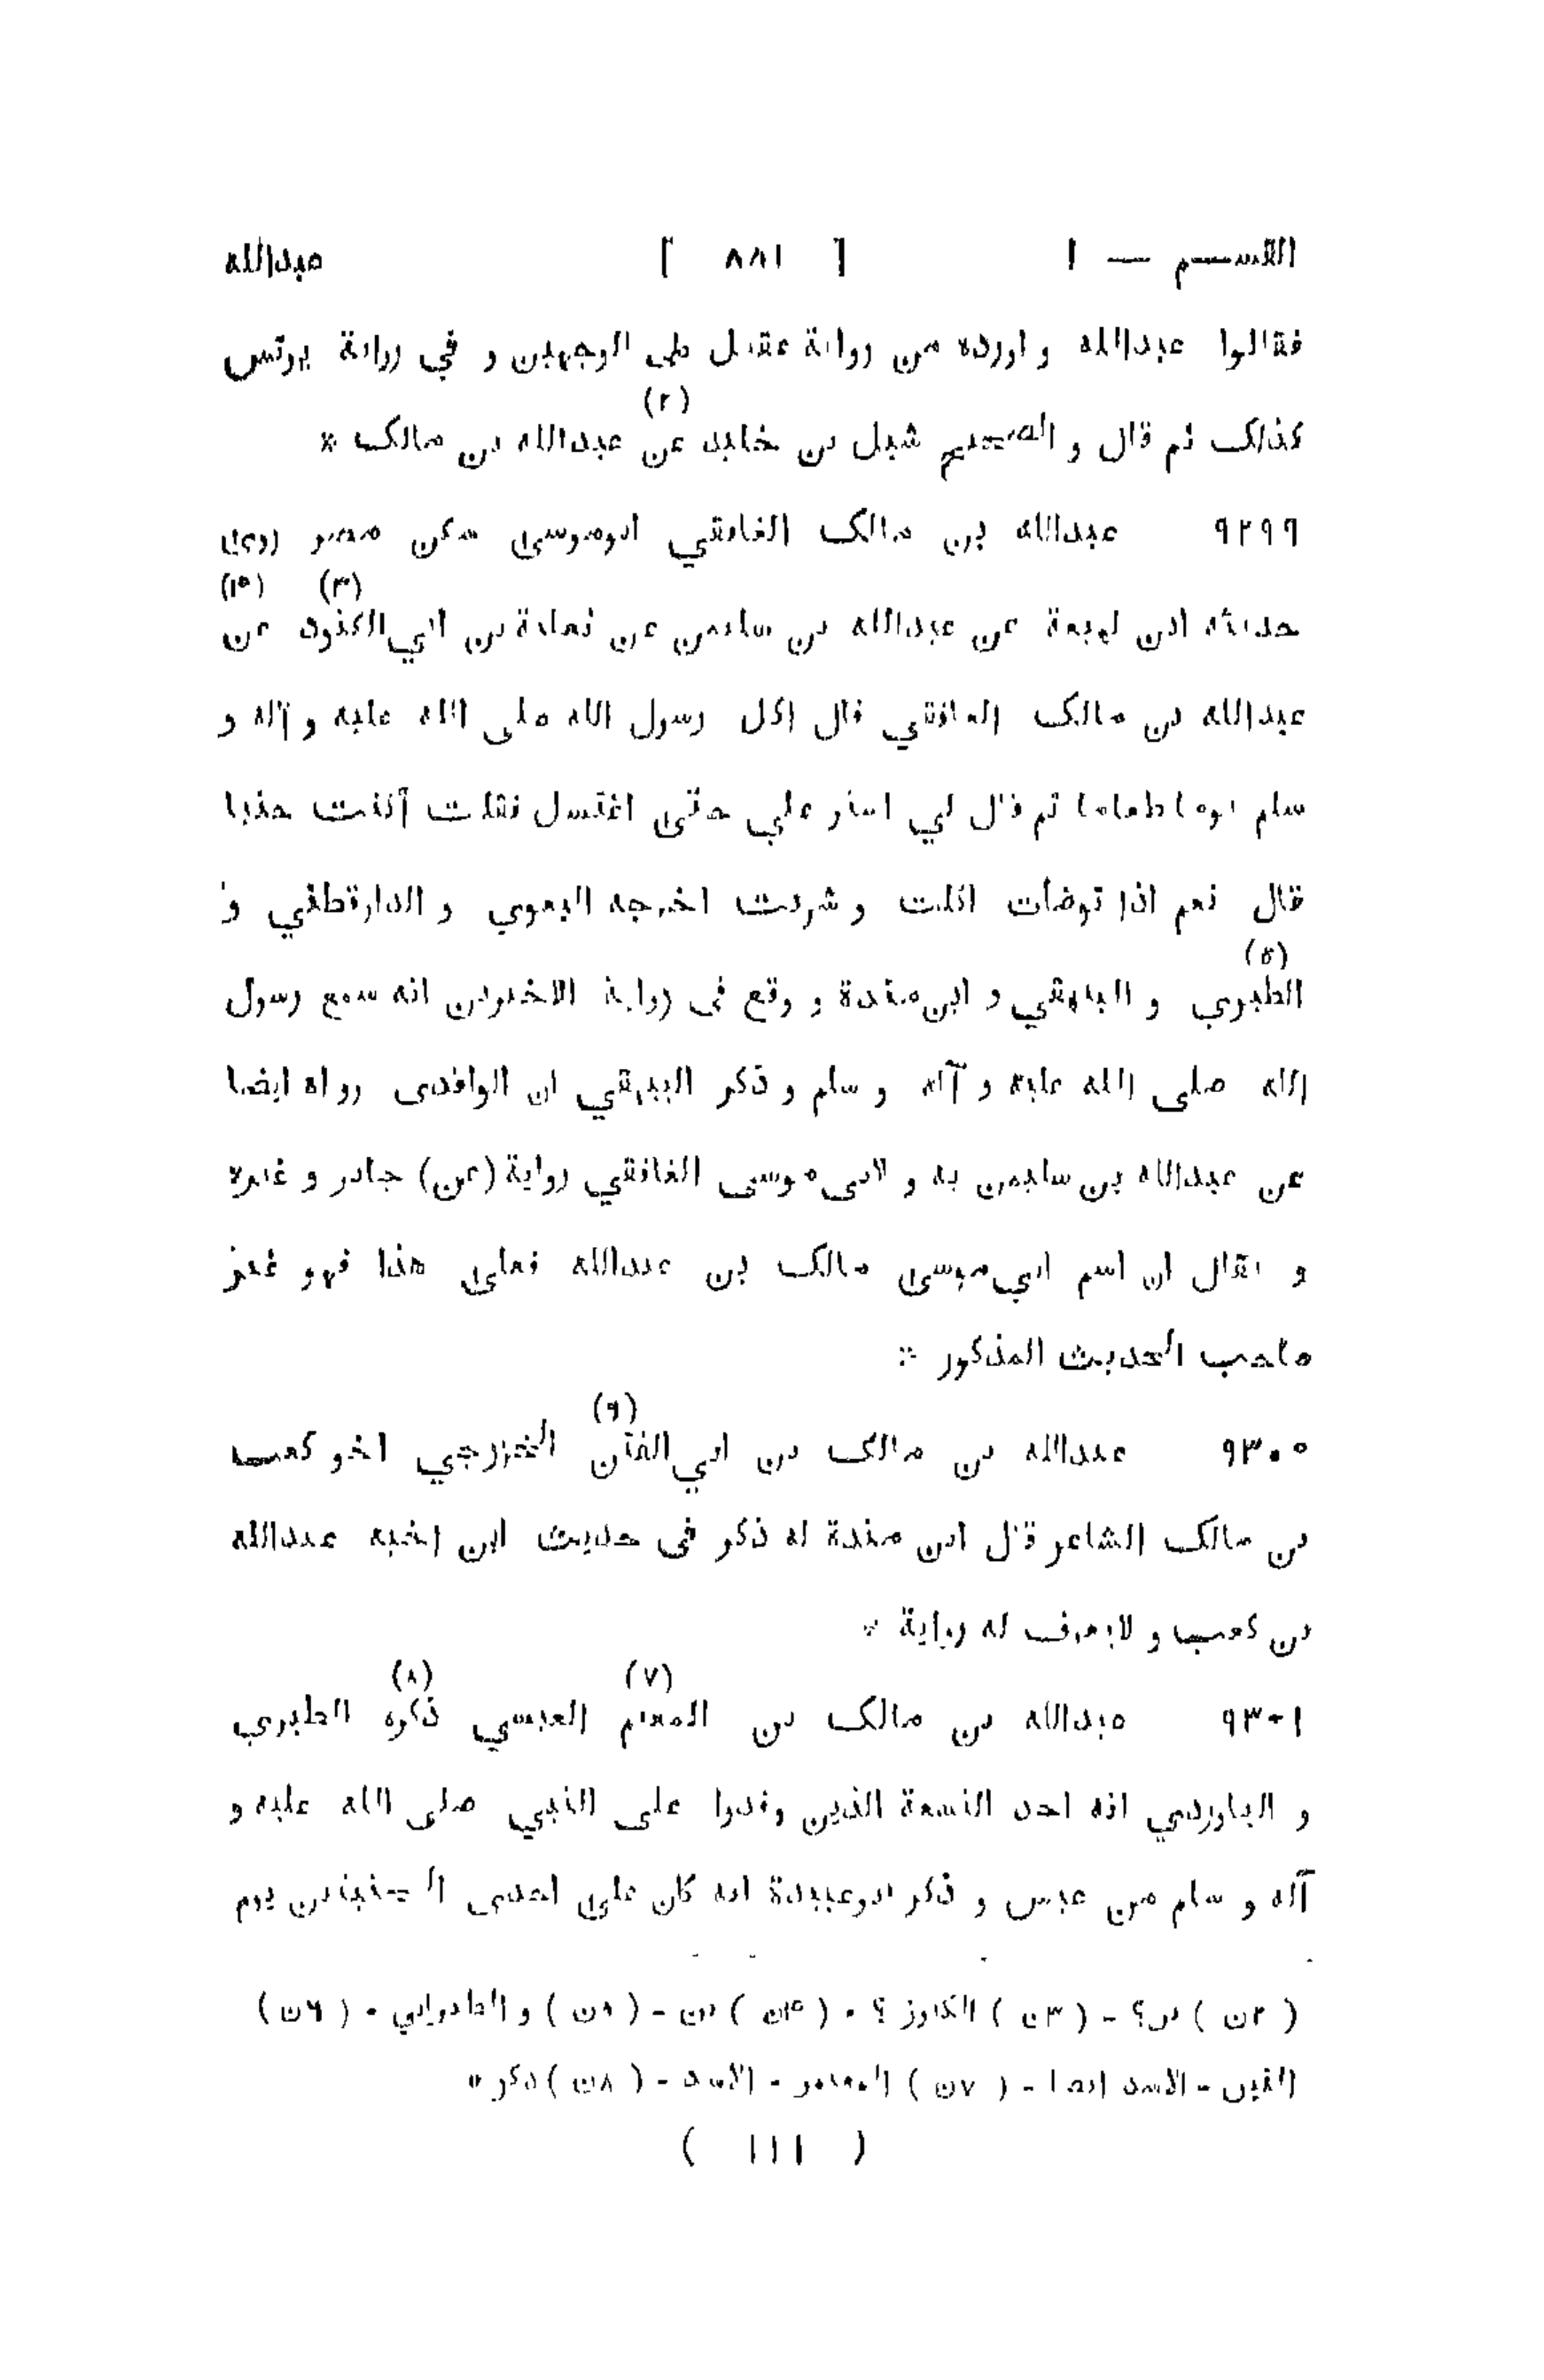 القســم — ١ [ ٨٨١ ] عبدالله
فقالوا عبدالله و اورده من رواية عقيل على الوجهين و في رواية يونس
كذلك ثم قال و الصحيح شبل بن خليد (٢) عن عبدالله بن مالك *
٩٢٩٩ عبدالله بن مالك الغافقي ابوموسى سكن مصر روى
حديثه ابن لهيعة عن عبدالله بن سليمن عن ثعلبة بن ابي الكنود (٣) عن (۴)
عبدالله بن مالك الغافقي قال اكل رسول الله صلى الله عليه و آله و
سلم يوما طعاما ثم قال لي استر علي حتى اغتسل فقلت أكنت جنبا
قال نعم اذا توضأت اكلت و شربت اخرجه البغوي و الدارقطني و
الطبري (٥) و البيهقي و ابن مندة و وقع فى رواية الاخيرين انه سمع رسول
الله صلى الله عليه و آله و سلم و ذكر البيهقي ان الواقدى رواه ايضا
عن عبدالله بن سليمن به و لابى موسى الغافقي رواية (عن) جابر و غيره
و يقال ان اسم ابي موسى مالك بن عبدالله فعلى هذا فهو غير
صاحب الحديث المذكور *
٩٣٠٠ عبدالله بن مالك بن ابي القين (٦) الخزرجي اخو كعب
بن مالك الشاعر قال ابن مندة له ذكر فى حديث ابن اخيه عبدالله
بن كعب و لايعرف له رواية *
٩٣٠١ عبدالله بن مالك بن المعتم (٧) العبسي ذكره (٨) الطبري
و الباوردي انه احد التسعة الذين وفدوا على النبي صلى الله عليه و
آله و سلم من عبس و ذكر ابوعبيدة انه كان على احدى المجنبتين يوم
( ٢ن ) بن؟ - ( ٣ن ) الكنوز ؟ - ( ۴ن ) بن - ( ٥ن ) و الطبراني - ( ٦ن )
القين - الاسد ايضا - ( ٧ن ) المعتمر - الاسد - ( ٨ن ) ذكر *
( ١١١ )